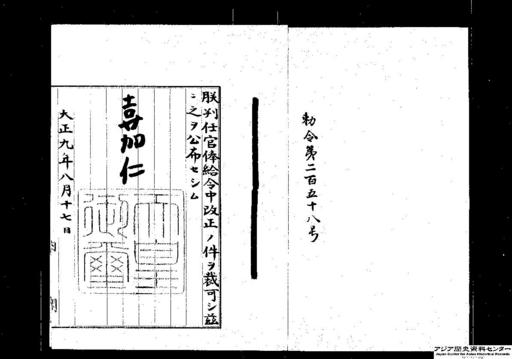 勅令第二百五十八号
朕判任官俸給令中改正ノ件ヲ裁可シ茲
ニ之ヲ公布セシム
嘉仁
天皇
御璽
大正九年八月十七日
内閣
アジア歴史資料センター
Japan Center for Asian Historical Records